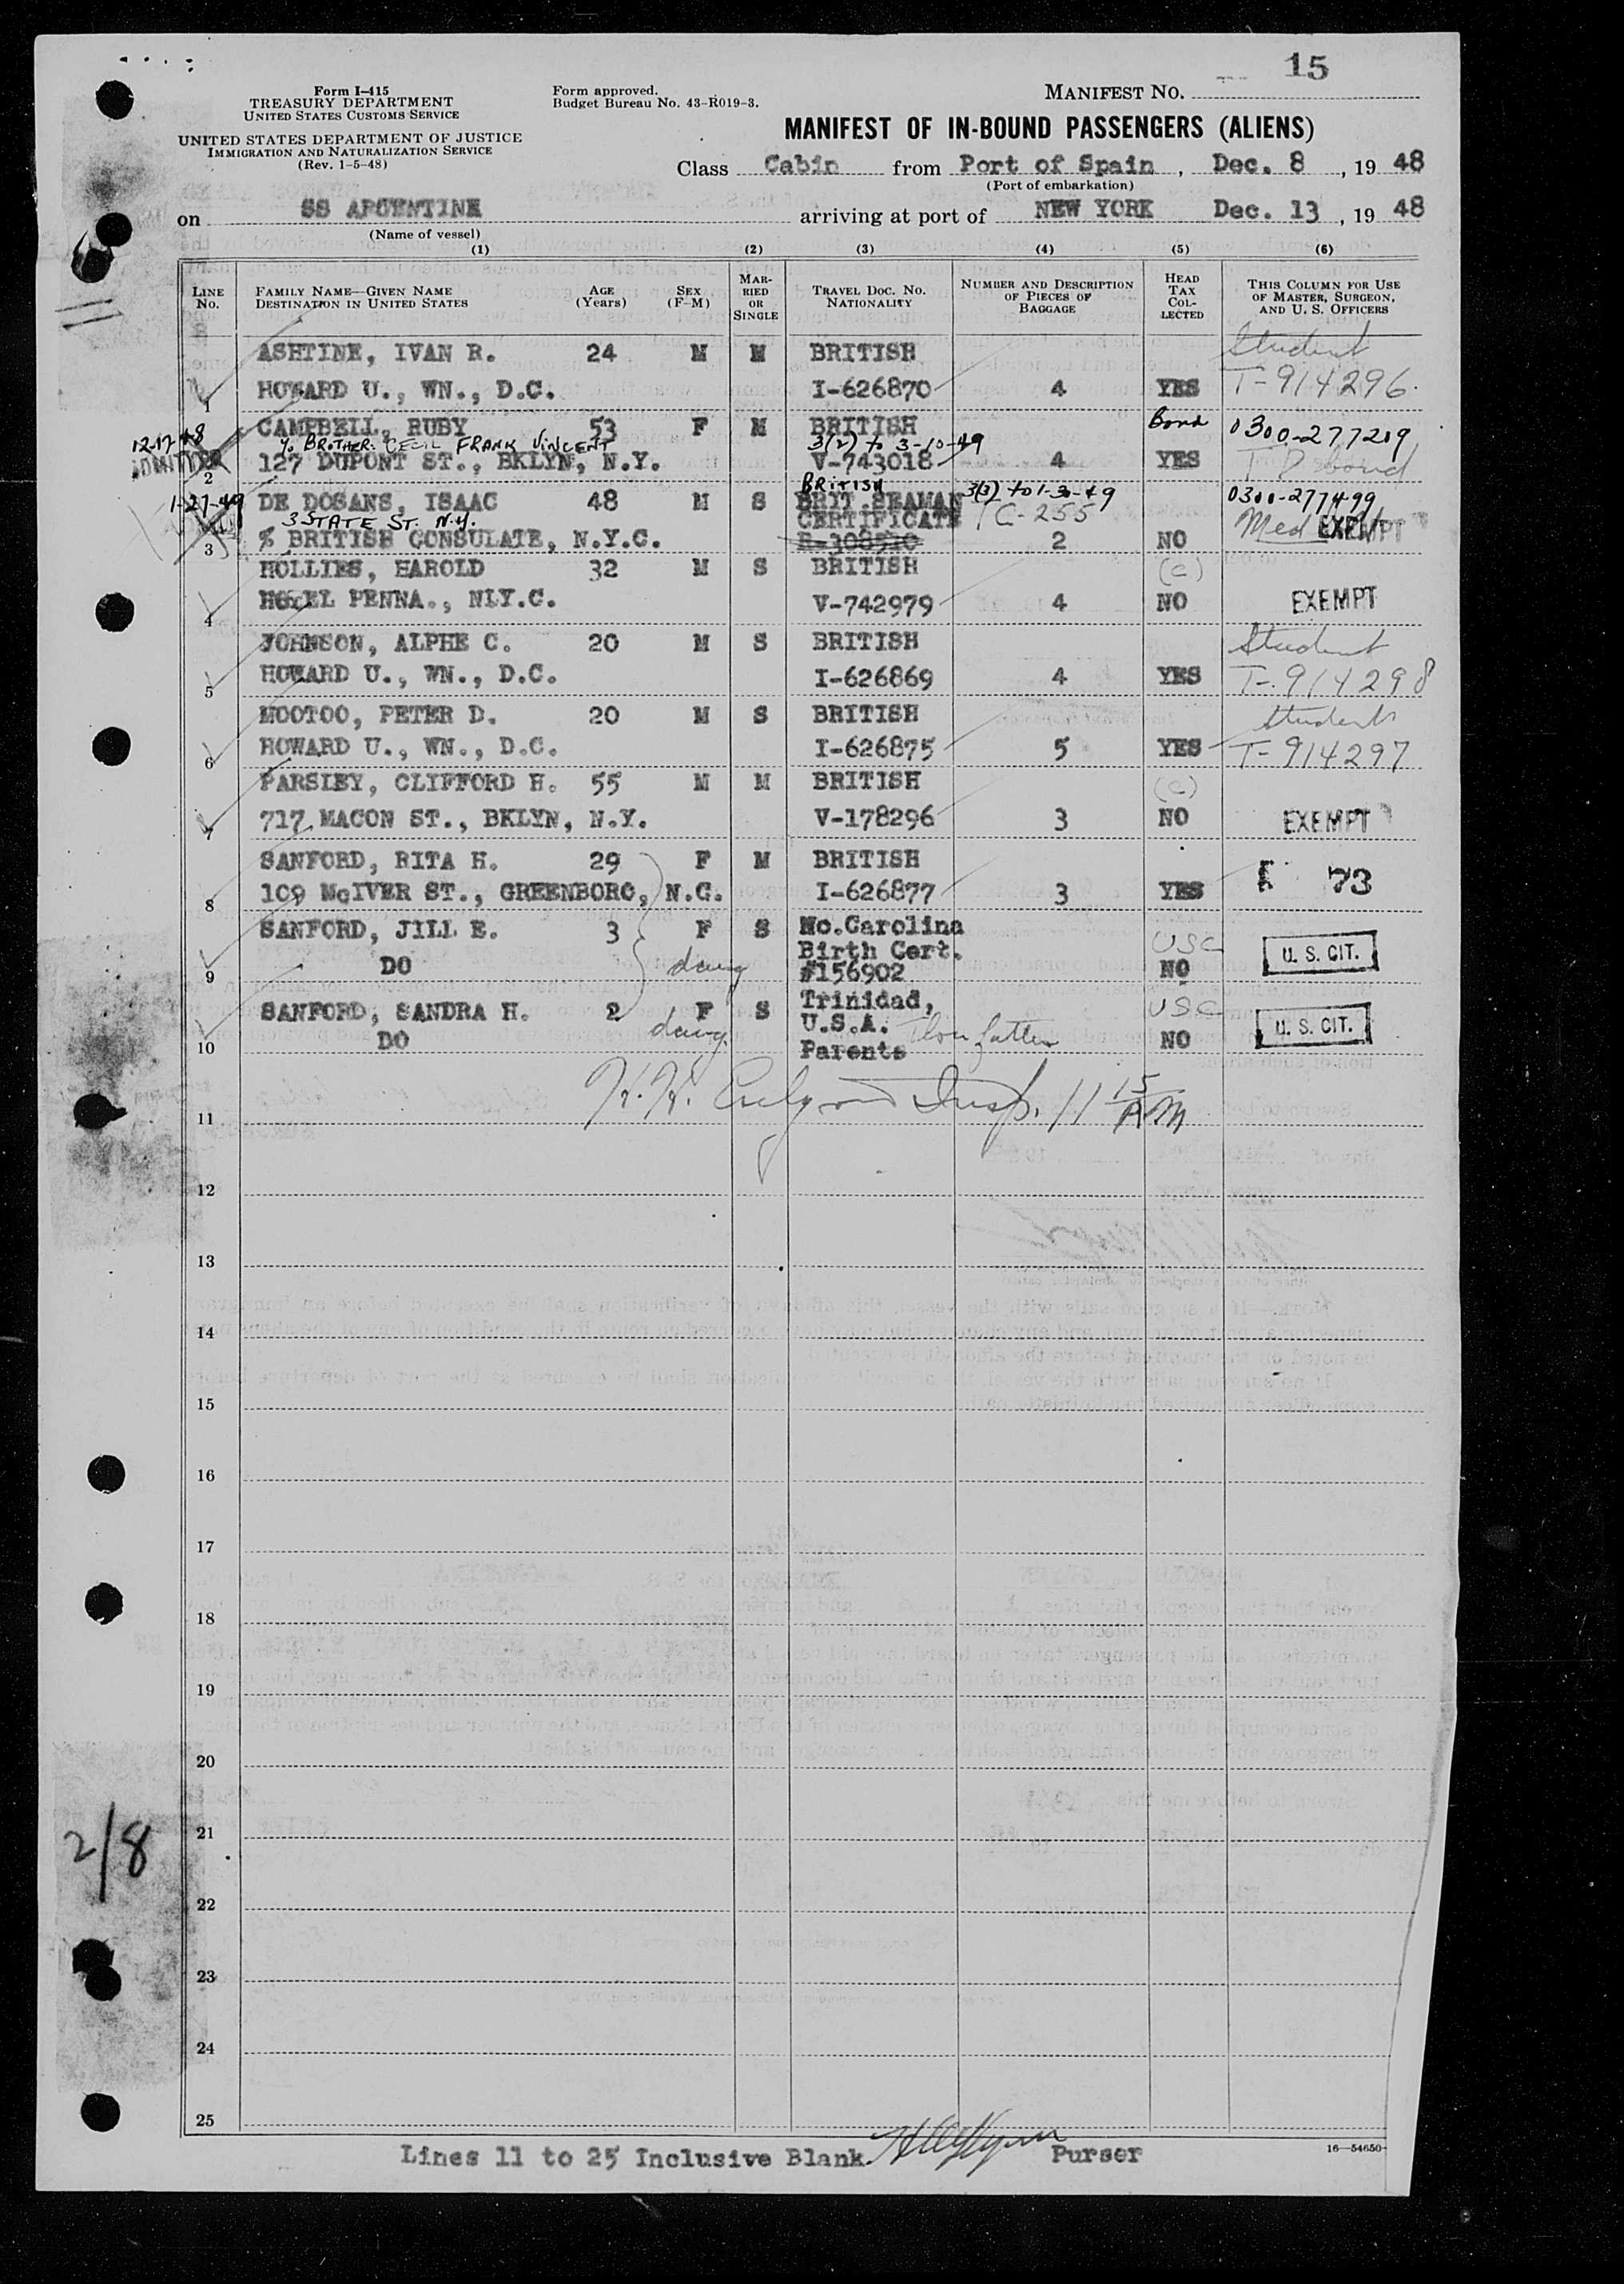 15
Form I-415
TREASURY DEPARTMENT
UNITED STATES CUSTOMS SERVICE
UNITED STATES DEPARTMENT OF JUSTICE
IMMIGRATION AND NATURALIZATION SERVICE
(Rev. 1-5-48)
Form approved.
Budget Bureau No. 43-R019-3.
MANIFEST NO.
MANIFEST OF IN-BOUND PASSENGERS (ALIENS)
Class Cabin from Port of Spain, Dec. 8, 1948
(Port of embarkation)
on SS ARGENTINE arriving at port of NEW YORK Dec. 13, 1948
(Name of vessel)
(1) (2) (3) (4) (5) (6)
LINE No. FAMILY NAME—GIVEN NAME DESTINATION IN UNITED STATES AGE (Years) SEX (F-M) MARRIED OR SINGLE TRAVEL DOC. NO. NATIONALITY NUMBER AND DESCRIPTION OF PIECES OF BAGGAGE HEAD TAX COLLECTED THIS COLUMN FOR USE OF MASTER, SURGEON, AND U. S. OFFICERS
ASHTINE, IVAN R. 24 M M BRITISH Student
1 HOWARD U., WN., D.C. I-626870 4 YES T-914296
12-17-48 CAMPBELL, RUBY 53 F M BRITISH Bond 0300-277209
% BROTHER: CECIL FRANK VINCENT 3(2) to 3-10-49
ADMITTED 2 127 DUPONT ST., BKLYN, N.Y. V-743018 4 YES bond
BRITISH
1-27-49 DE DOSANS, ISAAC 48 M S BRIT.SEAMAN 3(3) to 1-30-49 0300-277499
3 STATE ST. N.Y. CERTIFICATE C-255 Med EXEMPT
3 % BRITISH CONSULATE, N.Y.C. R-308510 2 NO
HOLLIES, HAROLD 32 M S BRITISH (c)
4 HOTEL PENNA., NLY.C. V-742979 4 NO EXEMPT
JOHNSON, ALPHE C. 20 M S BRITISH Student
5 HOWARD U., WN., D.C. I-626869 4 YES T-914298
MOOTOO, PETER D. 20 M S BRITISH Student
6 HOWARD U., WN., D.C. I-626875 5 YES T-914297
PARSLEY, CLIFFORD H. 55 M M BRITISH (c)
7 717 MACON ST., BKLYN, N.Y. V-178296 3 NO EXEMPT
SANFORD, RITA H. 29 F M BRITISH
8 109 McIVER ST., GREENBORO, N.C. I-626877 3 YES 73
SANFORD, JILL E. 3 F S No.Carolina USC
Birth Cert. U. S. CIT.
9 DO daug #156902 NO
SANFORD, SANDRA H. 2 F S Trinidad, USC
U.S.A. U. S. CIT.
10 DO daug Parents father NO
Insp. 11 15 AM
11
12
13
14
15
16
17
18
19
20
21
2/8
22
23
24
25
Lines 11 to 25 Inclusive Blank. Purser
16—54650-